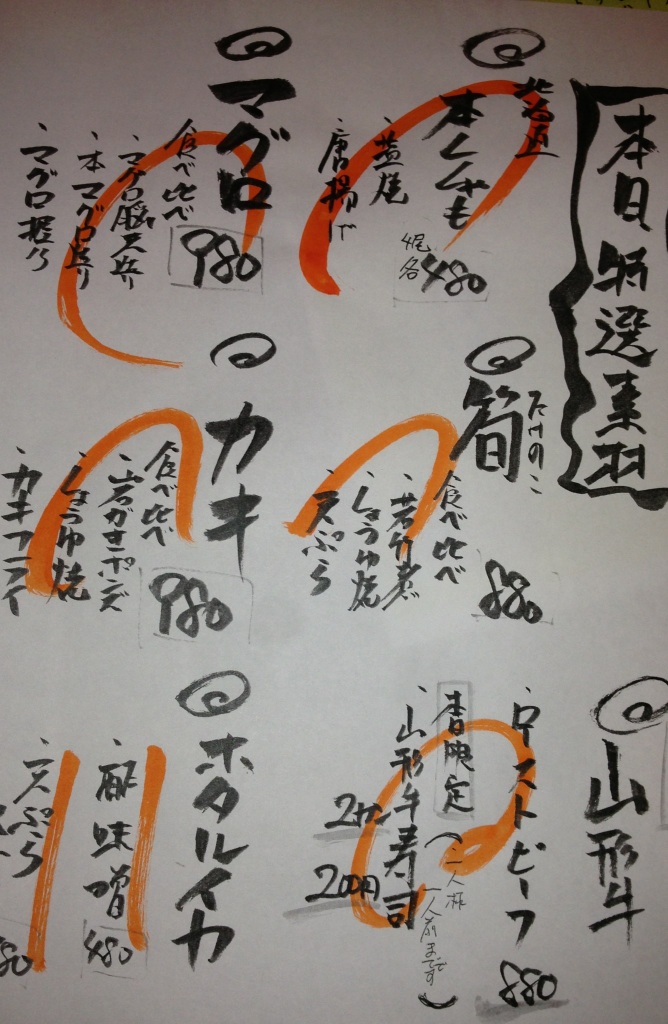 本日特選素材
北海道
本ししゃも
・塩焼
・唐揚げ
4尾
各480
マグロ
食べ比べ
・マグロ脳天炙り
・本マグロ炙り
・マグロ握り
980
たけのこ
筍
食べ比べ
・若竹煮
・しょうゆ焼
・天ぷら
880
カキ
食べ比べ
・岩ガキポンズ
・しょうゆ焼
・カキフライ
980
山形牛
・ローストビーフ
880
本日限定
・山形牛寿司
2カン
200円
(一人様
一人前までです)
ホタルイカ
・酢味噌
480
・天ぷら